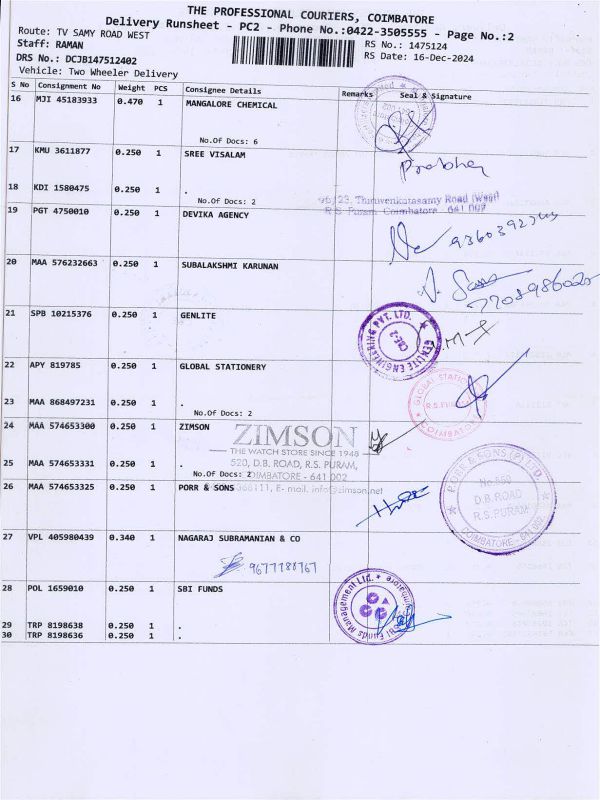 THE PROFESSIONAL COURIERS, COIMBATORE
Delivery Runsheet - PC2 - Phone No.:0422-3505555 - Page No.:2
Route: TV SAMY ROAD WEST
RS No.: 1475124
Staff: RAMAN
RS Date: 16-Dec-2024
DRS No.: DCJB147512402
Vehicle: Two Wheeler Delivery
S No Consignment No Weight PCS Consignee Details Remarks Seal & Signature
16 MJI 45183933 0.470 1 MANGALORE CHEMICAL
No.Of Docs: 6
17 KMU 3611877 0.250 1 SREE VISALAM
Prabha
18 KDI 1580475 0.250 1 .
No.Of Docs: 2
23, Thiruvenkatasamy Road (West)
R.S. Puram Coimbatore - 641 002
19 PGT 4750010 0.250 1 DEVIKA AGENCY
20 MAA 576232663 0.250 1 SUBALAKSHMI KARUNAN
21 SPB 10215376 0.250 1 GENLITE
GENLITE ENGINEERING PVT. LTD.
CBE-2
22 APY 819785 0.250 1 GLOBAL STATIONERY
GLOBAL STATIONERY
R.S.PURAM
COIMBATORE
23 MAA 868497231 0.250 1 .
No.Of Docs: 2
24 MAA 574653300 0.250 1 ZIMSON
ZIMSON
THE WATCH STORE SINCE 1948
520, D.B. ROAD, R.S. PURAM,
COIMBATORE - 641 002
E-mail. info@zimson.net
25 MAA 574653331 0.250 1 .
No.Of Docs: 2
26 MAA 574653325 0.250 1 PORR & SONS
PORR & SONS (P) LTD
D.B.ROAD
R.S.PURAM
COIMBATORE - 641 002
27 VPL 405980439 0.340 1 NAGARAJ SUBRAMANIAN & CO
28 POL 1659010 0.250 1 SBI FUNDS
SBI Funds Management Ltd.
Coimbatore
29 TRP 8198638 0.250 1 .
30 TRP 8198636 0.250 1 .